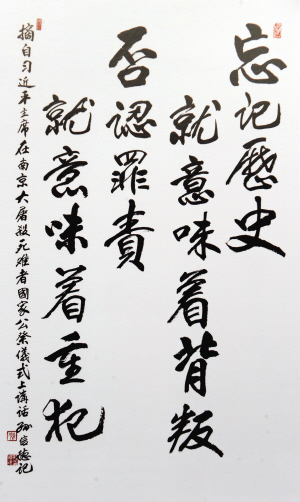 忘记歷史
就意味着背叛
否認罪責
就意味着重犯
摘自习近平主席在南京大屠殺死难者國家公祭儀式上讲话